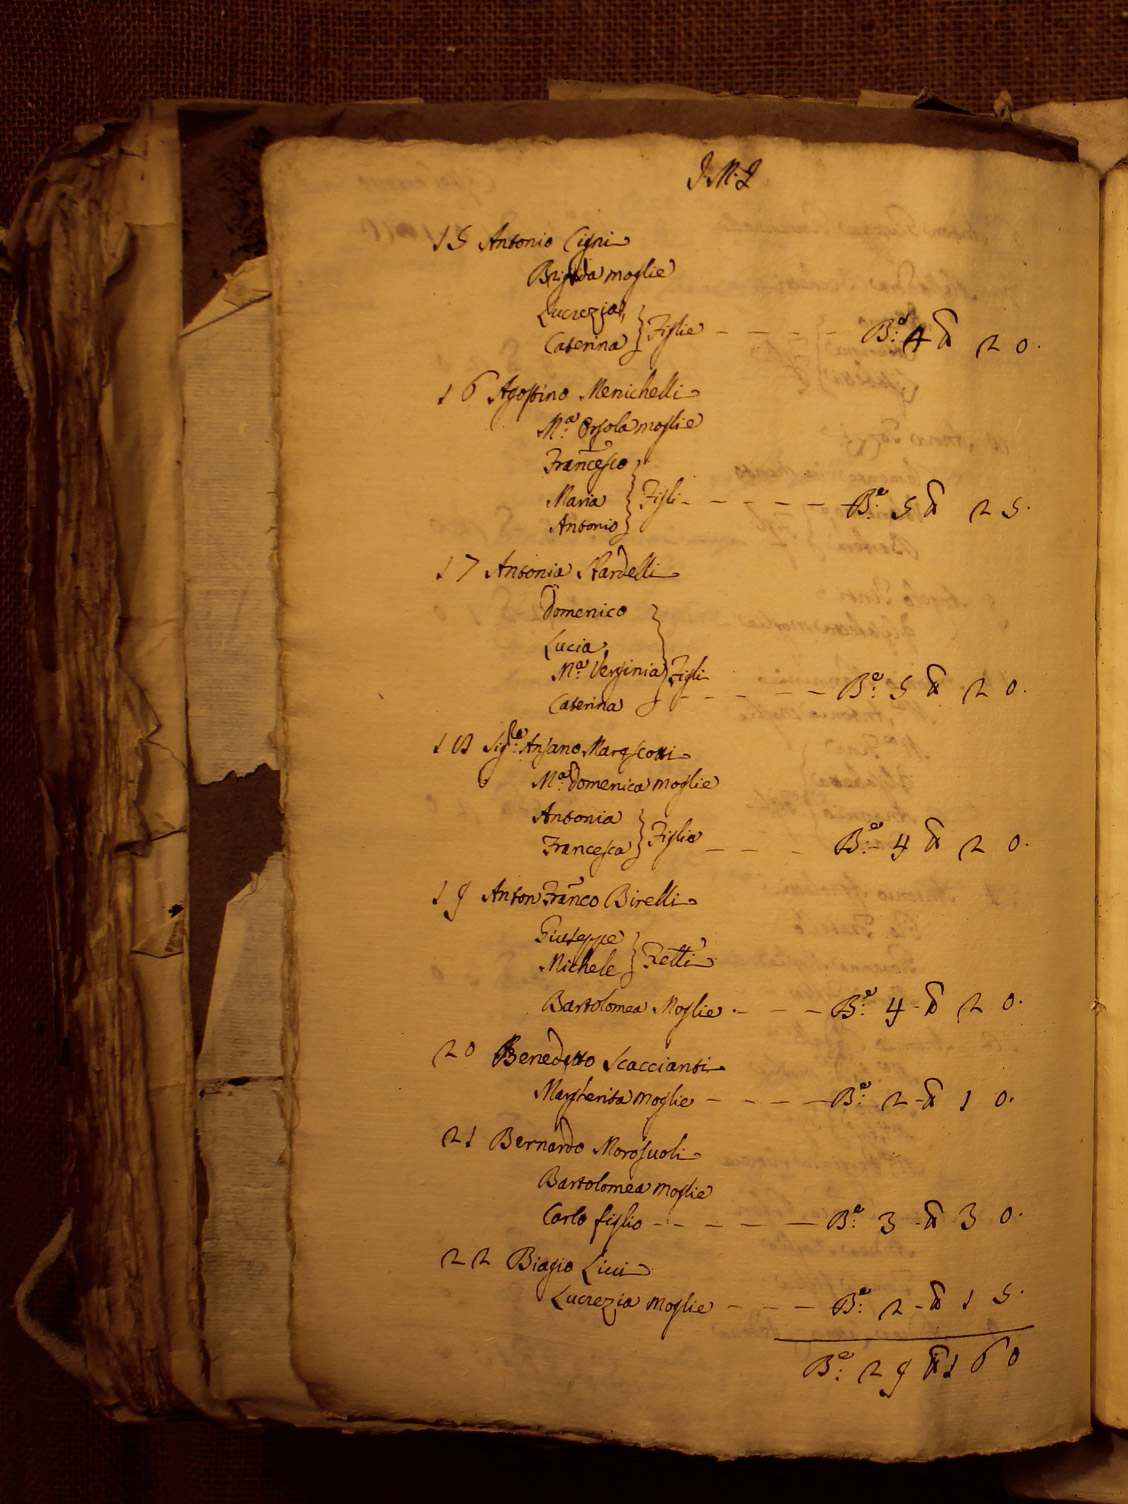 J. M. J
15 Antonio Cigni
Brigida moglie
Lucrezia
Caterina } Figlie - - - - B.e 4 ₶ 20.
16 Agostino Menichelli
M.a Orsola moglie
Francesco
Maria } Figli - - - - B.e 5 ₶ 25.
Antonio
17 Antonia Nardelli
Domenico
Lucia
M.a Verginia } Figli
Caterina - - - - B.e 5 ₶ 20.
18 Sig.re Ansano Marescotti
M.a Domenica moglie
Antonia
Francesca } Figlie - - - B.e 4 ₶ 20.
19 Anton Franco Birelli
Giuseppe
Michele } Fretti
Bartolomea Moglie - - - B.e 4 - ₶ 20.
20 Benedetto Scaccianti
Margherita moglie - - - - B.e 2 - ₶ 10.
21 Bernardo Morosuoli
Bartolomea moglie
Carlo figlio - - - - B.e 3 - ₶ 30.
22 Biagio Licci
Lucrezia moglie - - - B.e 2 - ₶ 15.
B.e 29 ₶ 160